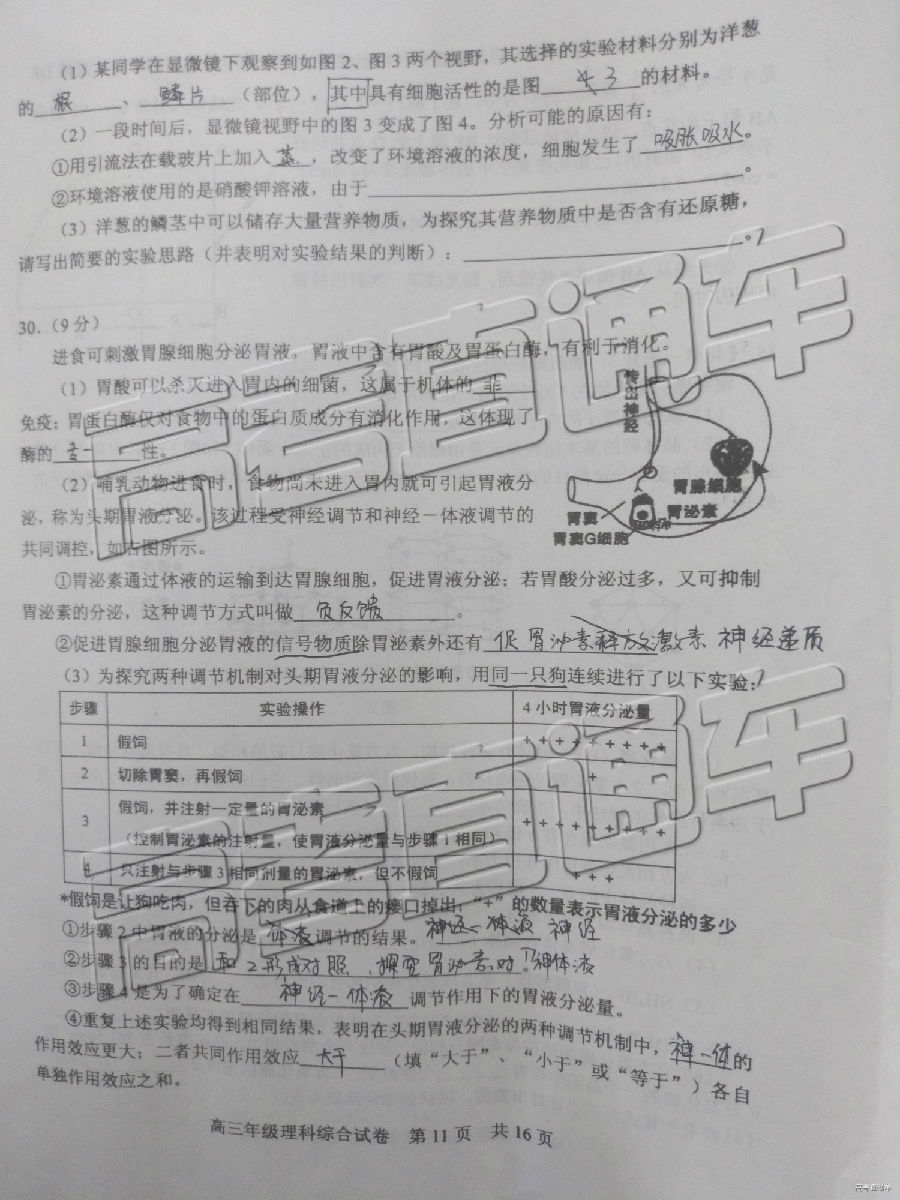 (1)某同学在显微镜下观察到如图2、图3两个视野，其选择的实验材料分别为洋葱
的 根 、 鳞片 （部位），其中具有细胞活性的是图 3 的材料。
(2)一段时间后，显微镜视野中的图3变成了图4。分析可能的原因有：
①用引流法在载玻片上加入 蒸 ，改变了环境溶液的浓度，细胞发生了 吸胀吸水 。
②环境溶液使用的是硝酸钾溶液，由于 。
(3)洋葱的鳞茎中可以储存大量营养物质，为探究其营养物质中是否含有还原糖，
请写出简要的实验思路（并表明对实验结果的判断）： 。
30.（9分）
进食可刺激胃腺细胞分泌胃液，胃液中含有胃酸及胃蛋白酶，有利于消化。
(1)胃酸可以杀灭进入胃内的细菌，这属于机体的 非
免疫；胃蛋白酶仅对食物中的蛋白质成分有消化作用，这体现了
酶的 专一 性。
(2)哺乳动物进食时，食物尚未进入胃内就可引起胃液分
泌，称为头期胃液分泌。该过程受神经调节和神经－体液调节的
共同调控，如右图所示。
传出神经
胃腺细胞
胃泌素
胃窦
胃窦G细胞
①胃泌素通过体液的运输到达胃腺细胞，促进胃液分泌；若胃酸分泌过多，又可抑制
胃泌素的分泌，这种调节方式叫做 负反馈 。
②促进胃腺细胞分泌胃液的信号物质除胃泌素外还有 促胃泌素释放激素 神经递质
(3)为探究两种调节机制对头期胃液分泌的影响，用同一只狗连续进行了以下实验：
步骤 实验操作 4小时胃液分泌量
1 假饲 + + + + + + + + +
2 切除胃窦，再假饲 +
3 假饲，并注射一定量的胃泌素
（控制胃泌素的注射量，使胃液分泌量与步骤1相同） + + + + + + + + +
4 只注射与步骤3相同剂量的胃泌素，但不假饲 + + +
*假饲是让狗吃肉，但吞下的肉从食道上的接口掉出；“+”的数量表示胃液分泌的多少
①步骤2中胃液的分泌是 体液 调节的结果。 神经－体液 神经
②步骤3的目的是 和2形成对照、探究胃泌素对 神体液
③步骤4是为了确定在 神经－体液 调节作用下的胃液分泌量。
④重复上述实验均得到相同结果，表明在头期胃液分泌的两种调节机制中， 神－体 的
作用效应更大；二者共同作用效应 大于 （填“大于”、“小于”或“等于”）各自
单独作用效应之和。
高三年级理科综合试卷 第11页 共16页
高考直通车
高考直通车
高考直通车